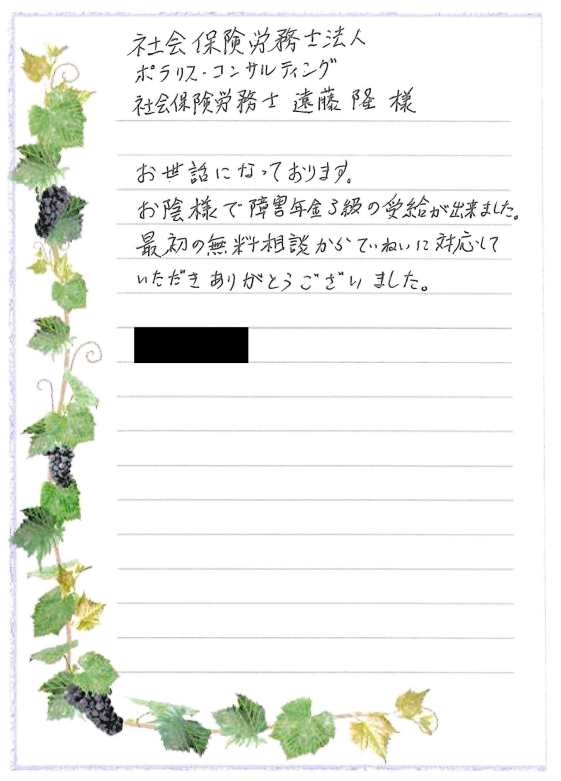 社会保険労務士法人
ポラリス・コンサルティング
社会保険労務士 遠藤 隆 様
お世話になっております。
お陰様で障害年金3級の受給が出来ました。
最初の無料相談からていねいに対応して
いただきありがとうございました。